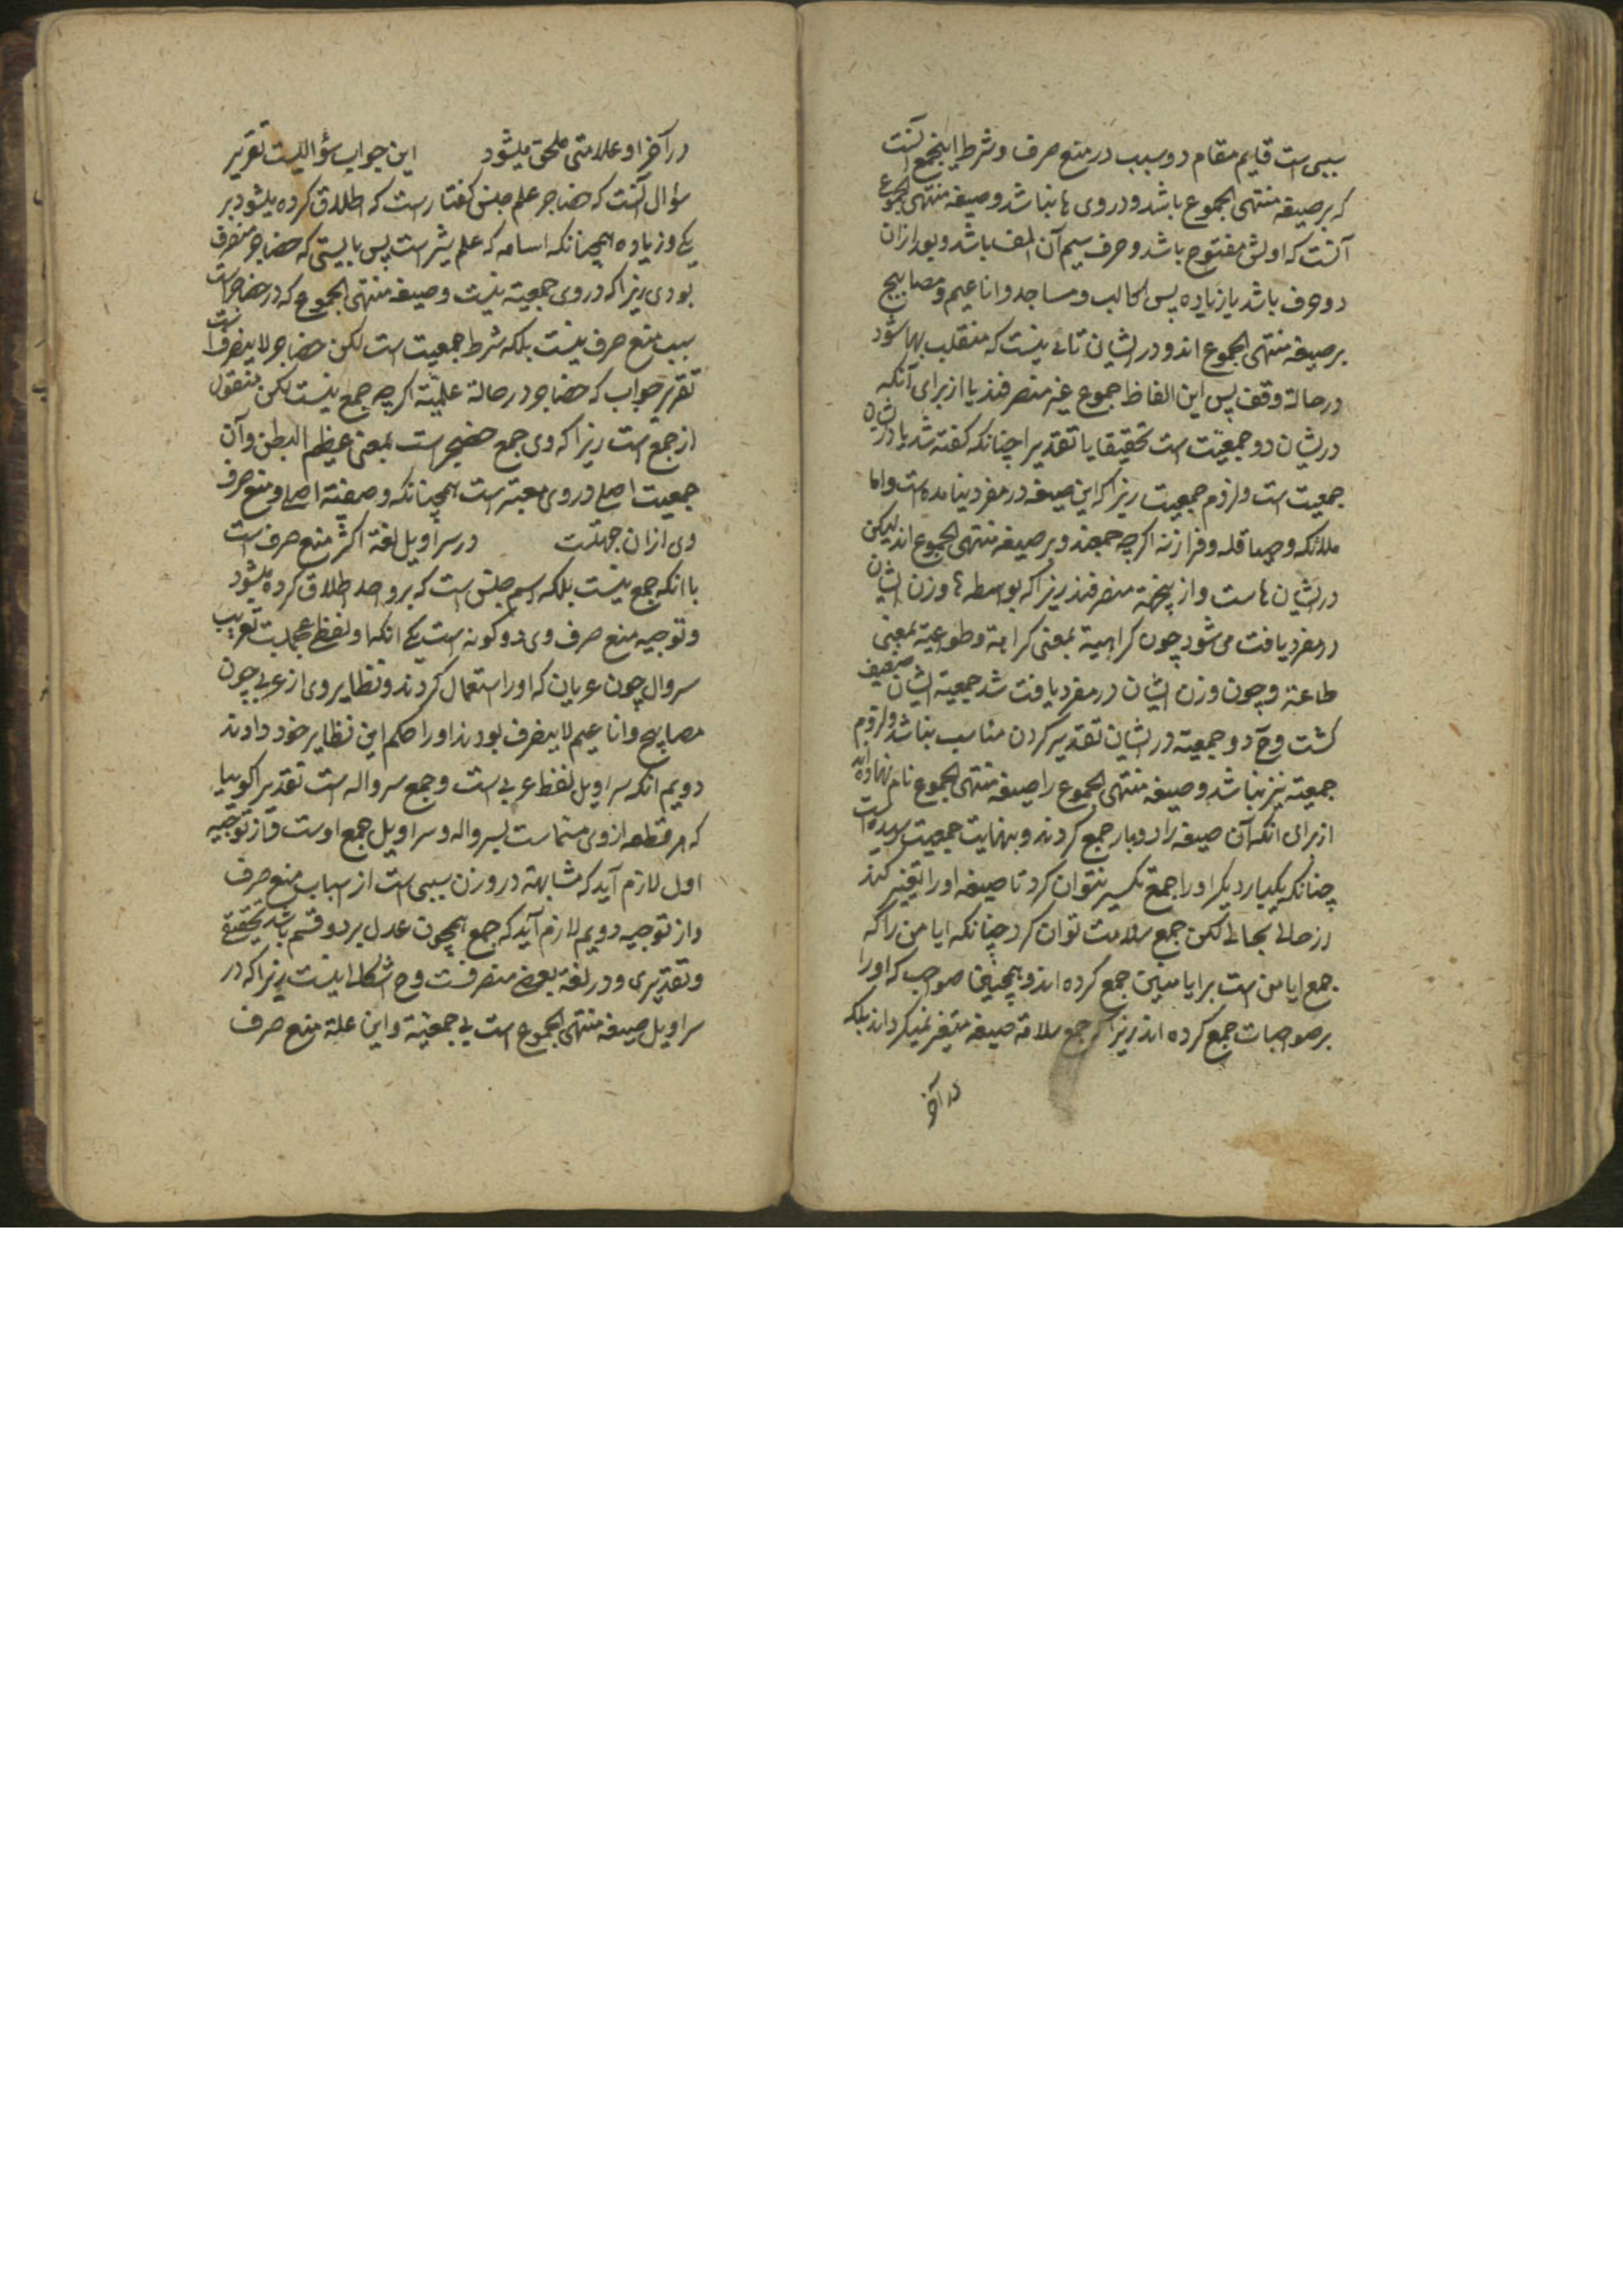 سببی است قایم مقام دو سبب در منع صرف و شرط اینجمع آنست
که بر صیغه منتهی الجموع باشد و در وی ها نباشد و صیغه منتهی الجموع
آنست که اولش مفتوح باشد و حرف سیم آن الف باشد و بعد ازان
دو حرف باشد یا زیاده پس اکالب و مساجد و اناعیم و مصابیح
بر صیغه منتهی الجموع اند و در ایشان تائی نیست که منقلب بها شود
در حالة وقف پس این الفاظ جموع غیر منصرفند یا از برای آنکه
در یشان دو جمعیت است تحقیقا یا تقدیرا چنانکه گفته شد یا در یشان
جمعیت است و لزوم جمعیت زیرا که این صیغه در مفرد نیامده است و اما
ملائکه و صیاقله و فرازنه اگرچه جمعند و بر صیغه منتهی الجموع اند لیکن
در یشان ها است و از ینجهة منصرفند زیرا که بواسطه ها وزن ایشان
در مفرد یافت می شود چون کراهیة بمعنی کراهة و طواعیة بمعنی
طاعة و چون وزن ایشان در مفرد یافت شد جمعیة ایشان ضعیف
گشت و ح دو جمعیة در یشان تقدیر کردن مناسب نباشد و لزوم
جمعیة نیز نباشد و صیغه منتهی الجموع را صیغه منتهی الجموع نام نهاده اند
از برای انکه آن صیغه را دو بار جمع کردند و بنهایت جمعیت رسیده است
چنانکه یکبار دیگر او را جمع تکسیر نتوان کرد تا صیغه او را تغییر کند
از حالی بحالی لکن جمع سلامت توان کرد چنانکه ایامن را که
جمع ایامن است بر ایامنین جمع کرده اند و همچنین صواحب که او را
بر صواحبات جمع کرده اند زیرا که جمع سلامة صیغه متغیر نمیگرداند بلکه
در آخر
در آخر او علامتی ملحق میشود این جواب سؤالیست تقریر
سؤال آنست که حضاجر علم جنس کفتارست که اطلاق کرده میشود بر
یکی و زیاده همچنانکه اسامه که علم شیر است پس بایستی که حضاجر منصرف
بودی زیرا که در وی جمعیة نیست و صیغه منتهی الجموع که در حضاجر است
سبب منع صرف نیست بلکه شرط جمعیت است لکن حضاجر لا ینصرف است
تقریر جواب که حضاجر در حالة علمیّة اگرچه جمع نیست لکن منقول
از جمع است زیرا که وی جمع حضجر است بمعنی عظیم البطن و آن
جمعیت اصلی در وی معتبر است همچنانکه وصفیّة اصلی و منع صرف
وی ازان جهتست در سراویل لغة اکثر منع صرف است
با انکه جمع نیست بلکه اسم جنس است که بر واحد اطلاق کرده میشود
و توجیه منع صرف وی دو گونه است یکی انکه او لفظ عجمیست تعریب
سروال چون عربان که او را استعمال کردند و نظایر وی از عربی چون
مصابیح و اناعیم لا ینصرف بودند او را حکم این نظایر خود دادند
دویم انکه سراویل لفظ عربی است و جمع سرواله است تقدیرا گوییا
که هر قطعه از وی مسماست بسرواله و سراویل جمع اوست و از توجیه
اول لازم آید که مشابهة در وزن سببی است از اسباب منع صرف
و از توجیه دویم لازم آید که جمع همچون عدل بر دو قسم باشد تحقیقی
و تقدیری و در لغة بعضی منصرفست و ح اشکال نیست زیرا که در
سراویل صیغه منتهی الجموع است بی جمعیّة و این علة منع صرف